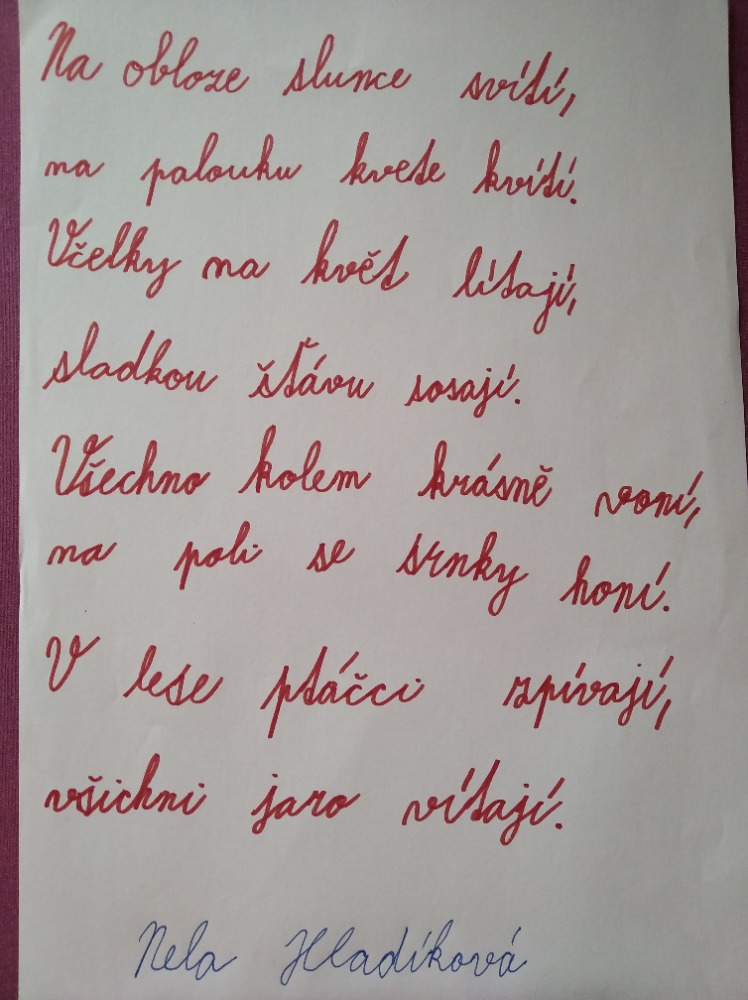 Na obloze slunce svítí,
na palouku kvete kvítí.
Včelky na květ lítají,
sladkou šťávu sosají.
Všechno kolem krásně voní,
na poli se srnky honí.
V lese ptáčci zpívají,
všichni jaro vítají.
Nela Hladíková